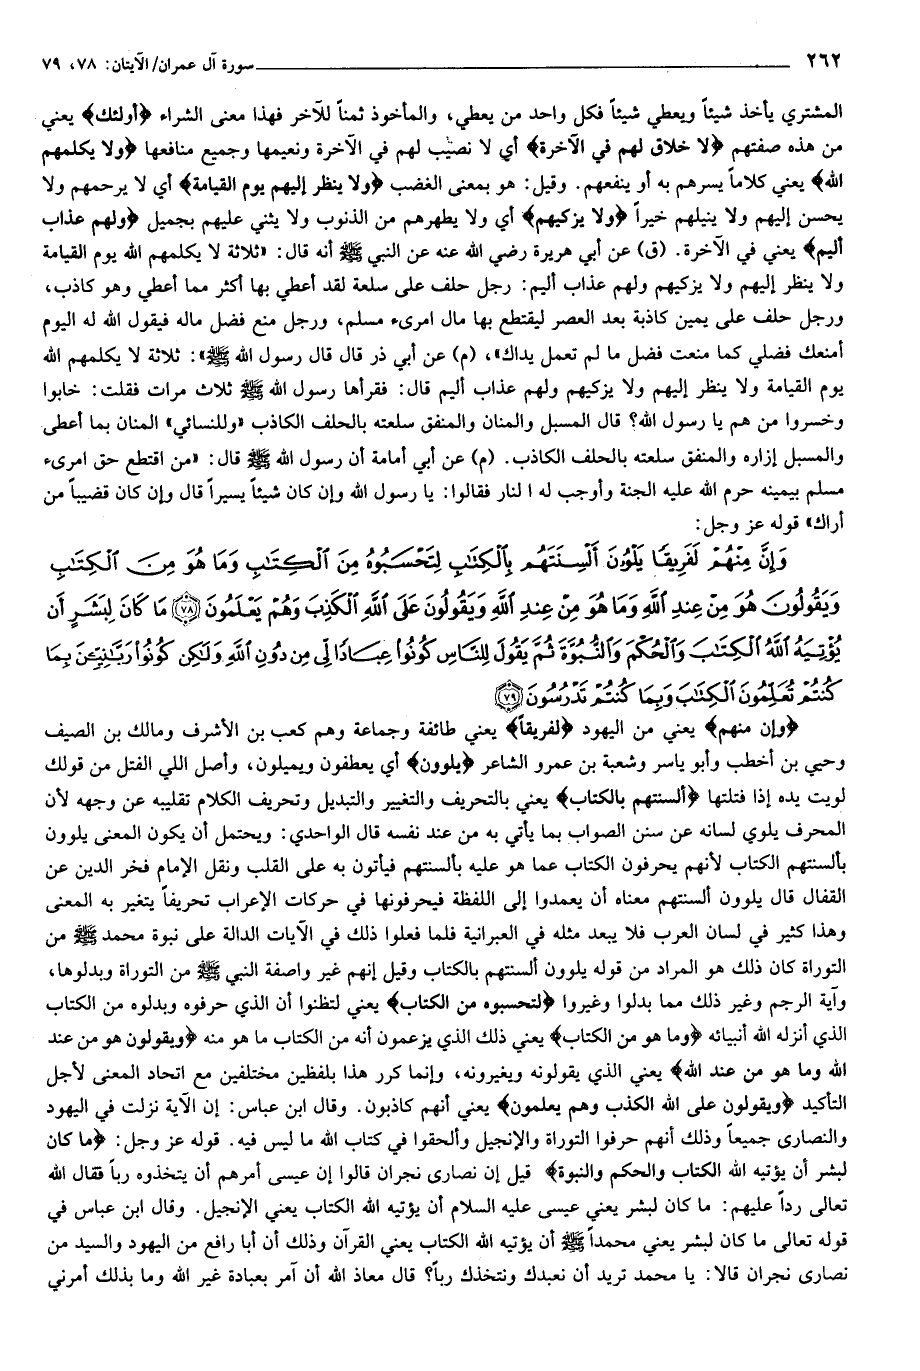 ٢٦٢ ــــــــــــــــــــــــــــــ سورة آل عمران/ الآيتان: ٧٨، ٧٩
المشتري يأخذ شيئاً ويعطي شيئاً فكل واحد من يعطي، والمأخوذ ثمناً للآخر فهذا معنى الشراء ﴿أولئك﴾ يعني
من هذه صفتهم ﴿لا خلاق لهم في الآخرة﴾ أي لا نصيب لهم في الآخرة ونعيمها وجميع منافعها ﴿ولا يكلمهم
الله﴾ يعني كلاماً يسرهم به أو ينفعهم. وقيل: هو بمعنى الغضب ﴿ولا ينظر إليهم يوم القيامة﴾ أي لا يرحمهم ولا
يحسن إليهم ولا ينيلهم خيراً ﴿ولا يزكيهم﴾ أي ولا يطهرهم من الذنوب ولا يثني عليهم بجميل ﴿ولهم عذاب
أليم﴾ يعني في الآخرة. (ق) عن أبي هريرة رضي الله عنه عن النبي ﷺ أنه قال: «ثلاثة لا يكلمهم الله يوم القيامة
ولا ينظر إليهم ولا يزكيهم ولهم عذاب أليم: رجل حلف على سلعة لقد أعطي بها أكثر مما أعطي وهو كاذب،
ورجل حلف على يمين كاذبة بعد العصر ليقتطع بها مال امرىء مسلم، ورجل منع فضل ماله فيقول الله له اليوم
أمنعك فضلي كما منعت فضل ما لم تعمل يداك»، (م) عن أبي ذر قال قال رسول الله ﷺ»: ثلاثة لا يكلمهم الله
يوم القيامة ولا ينظر إليهم ولا يزكيهم ولهم عذاب أليم قال: فقرأها رسول الله ﷺ ثلاث مرات فقلت: خابوا
وخسروا من هم يا رسول الله؟ قال المسبل والمنان والمنفق سلعته بالحلف الكاذب «وللنسائي» المنان بما أعطى
والمسبل إزاره والمنفق سلعته بالحلف الكاذب. (م) عن أبي أمامة أن رسول الله ﷺ قال: «من اقتطع حق امرىء
مسلم بيمينه حرم الله عليه الجنة وأوجب له ا لنار فقالوا: يا رسول الله وإن كان شيئاً يسيراً قال وإن كان قضيباً من
أراك» قوله عز وجل:
وَإِنَّ مِنْهُمْ لَفَرِيقًا يَلْوُۥنَ أَلْسِنَتَهُم بِٱلْكِتَٰبِ لِتَحْسَبُوهُ مِنَ ٱلْكِتَٰبِ وَمَا هُوَ مِنَ ٱلْكِتَٰبِ
وَيَقُولُونَ هُوَ مِنْ عِندِ ٱللَّهِ وَمَا هُوَ مِنْ عِندِ ٱللَّهِ وَيَقُولُونَ عَلَى ٱللَّهِ ٱلْكَذِبَ وَهُمْ يَعْلَمُونَ ﴿٧٨﴾ مَا كَانَ لِبَشَرٍ أَن
يُؤْتِيَهُ ٱللَّهُ ٱلْكِتَٰبَ وَٱلْحُكْمَ وَٱلنُّبُوَّةَ ثُمَّ يَقُولَ لِلنَّاسِ كُونُوا۟ عِبَادًا لِّى مِن دُونِ ٱللَّهِ وَلَٰكِن كُونُوا۟ رَبَّٰنِيِّۦنَ بِمَا
كُنتُمْ تُعَلِّمُونَ ٱلْكِتَٰبَ وَبِمَا كُنتُمْ تَدْرُسُونَ ﴿٧٩﴾
﴿وإن منهم﴾ يعني من اليهود ﴿لفريقاً﴾ يعني طائفة وجماعة وهم كعب بن الأشرف ومالك بن الصيف
وحيي بن أخطب وأبو ياسر وشعبة بن عمرو الشاعر ﴿يلوون﴾ أي يعطفون ويميلون، وأصل اللي الفتل من قولك
لويت يده إذا فتلتها ﴿ألسنتهم بالكتاب﴾ يعني بالتحريف والتغيير والتبديل وتحريف الكلام تقليبه عن وجهه لأن
المحرف يلوي لسانه عن سنن الصواب بما يأتي به من عند نفسه قال الواحدي: ويحتمل أن يكون المعنى يلوون
بألسنتهم الكتاب لأنهم يحرفون الكتاب عما هو عليه بألسنتهم فيأتون به على القلب ونقل الإمام فخر الدين عن
القفال قال يلوون ألسنتهم معناه أن يعمدوا إلى اللفظة فيحرفونها في حركات الإعراب تحريفاً يتغير به المعنى
وهذا كثير في لسان العرب فلا يبعد مثله في العبرانية فلما فعلوا ذلك في الآيات الدالة على نبوة محمد ﷺ من
التوراة كان ذلك هو المراد من قوله يلوون ألسنتهم بالكتاب وقيل إنهم غير واصفة النبي ﷺ من التوراة وبدلوها،
وآية الرجم وغير ذلك مما بدلوا وغيروا ﴿لتحسبوه من الكتاب﴾ يعني لتظنوا أن الذي حرفوه وبدلوه من الكتاب
الذي أنزله الله أنبيائه ﴿وما هو من الكتاب﴾ يعني ذلك الذي يزعمون أنه من الكتاب ما هو منه ﴿ويقولون هو من عند
الله وما هو من عند الله﴾ يعني الذي يقولونه ويغيرونه، وإنما كرر هذا بلفظين مختلفين مع اتحاد المعنى لأجل
التأكيد ﴿ويقولون على الله الكذب وهم يعلمون﴾ يعني أنهم كاذبون. وقال ابن عباس: إن الآية نزلت في اليهود
والنصارى جميعاً وذلك أنهم حرفوا التوراة والإنجيل وألحقوا في كتاب الله ما ليس فيه. قوله عز وجل: ﴿ما كان
لبشر أن يؤتيه الله الكتاب والحكم والنبوة﴾ قيل إن نصارى نجران قالوا إن عيسى أمرهم أن يتخذوه رباً فقال الله
تعالى رداً عليهم: ما كان لبشر يعني عيسى عليه السلام أن يؤتيه الله الكتاب يعني الإنجيل. وقال ابن عباس في
قوله تعالى ما كان لبشر يعني محمداً ﷺ أن يؤتيه الله الكتاب يعني القرآن وذلك أن أبا رافع من اليهود والسيد من
نصارى نجران قالا: يا محمد تريد أن نعبدك ونتخذك رباً؟ قال معاذ الله أن آمر بعبادة غير الله وما بذلك أمرني